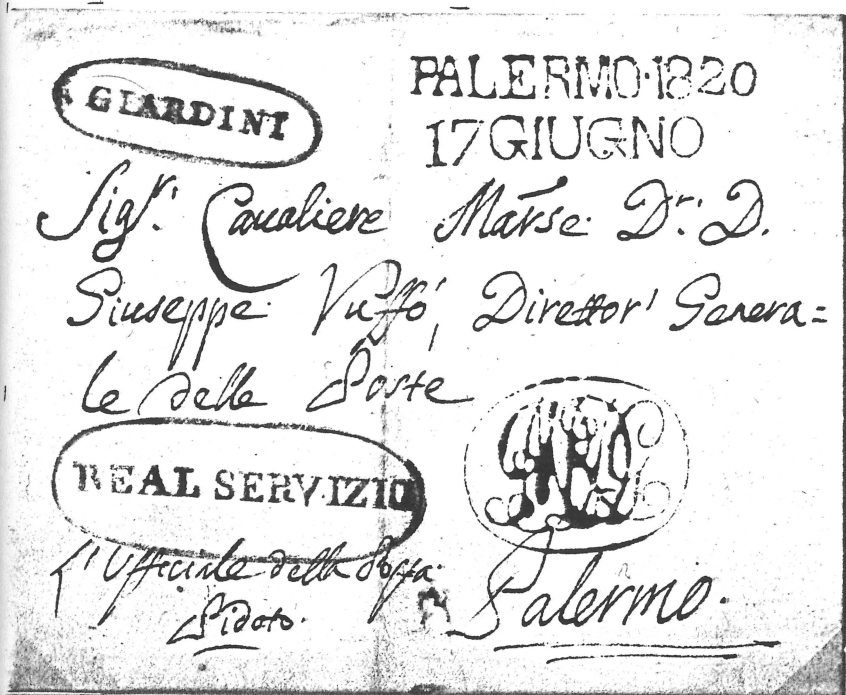 GIARDINI
PALERMO·1820
17 GIUGNO
Sigr. Cavaliere Marse. Dr. D.
Giuseppe Vuffo, Direttor' Genera=
le delle Poste
REAL SERVIZIO
L'Ufficiale della Posta
Palermo.